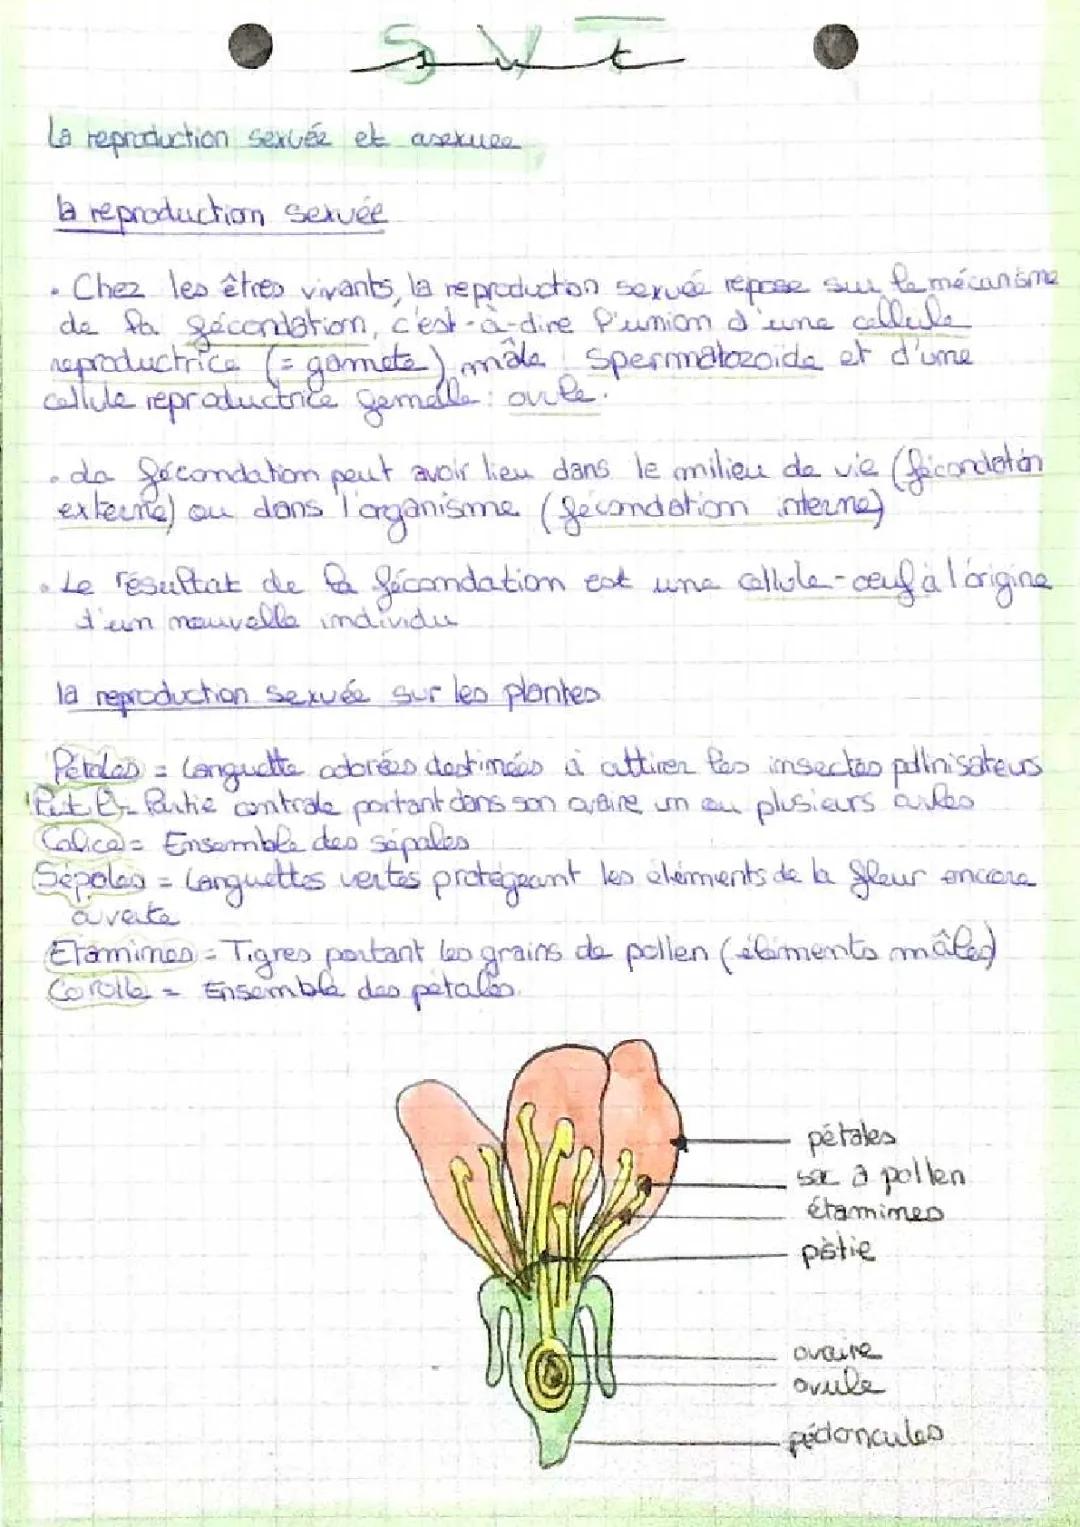 SVT
La reproduction sexuée et asexuee
la reproduction sexuée
• Chez les êtres vivants, la reproduction sexuée repose sur le mécanisme
de la fécondation, c'est-à-dire l'union d'une cellule
reproductrice (= gamete) mâle spermatozoide et d'une
cellule reproductrice femelle : ovule.
• La fécondation peut avoir lieu dans le milieu de vie (fécondation
externe) ou dans l'organisme (fécondation interne)
• Le résultat de la fécondation est une cellule-oeuf à l'origine
d'un nouvelle individu
la reproduction sexuée sur les plantes
Pétales = Languette colorées destinées à attirer les insectes pollinisateurs
= Partie centrale portant dans son ovaire un ou plusieurs ovules
Calice = Ensemble des sépales
Sépales = Languettes vertes protégeant les éléments de la fleur encore
ouverte
Etamines = Tigres portant les grains de pollen (éléments mâles)
Corolle = Ensemble des pétales.
pétales
sac a pollen
étamines
pistie
ovaire
ovule
pédoncules